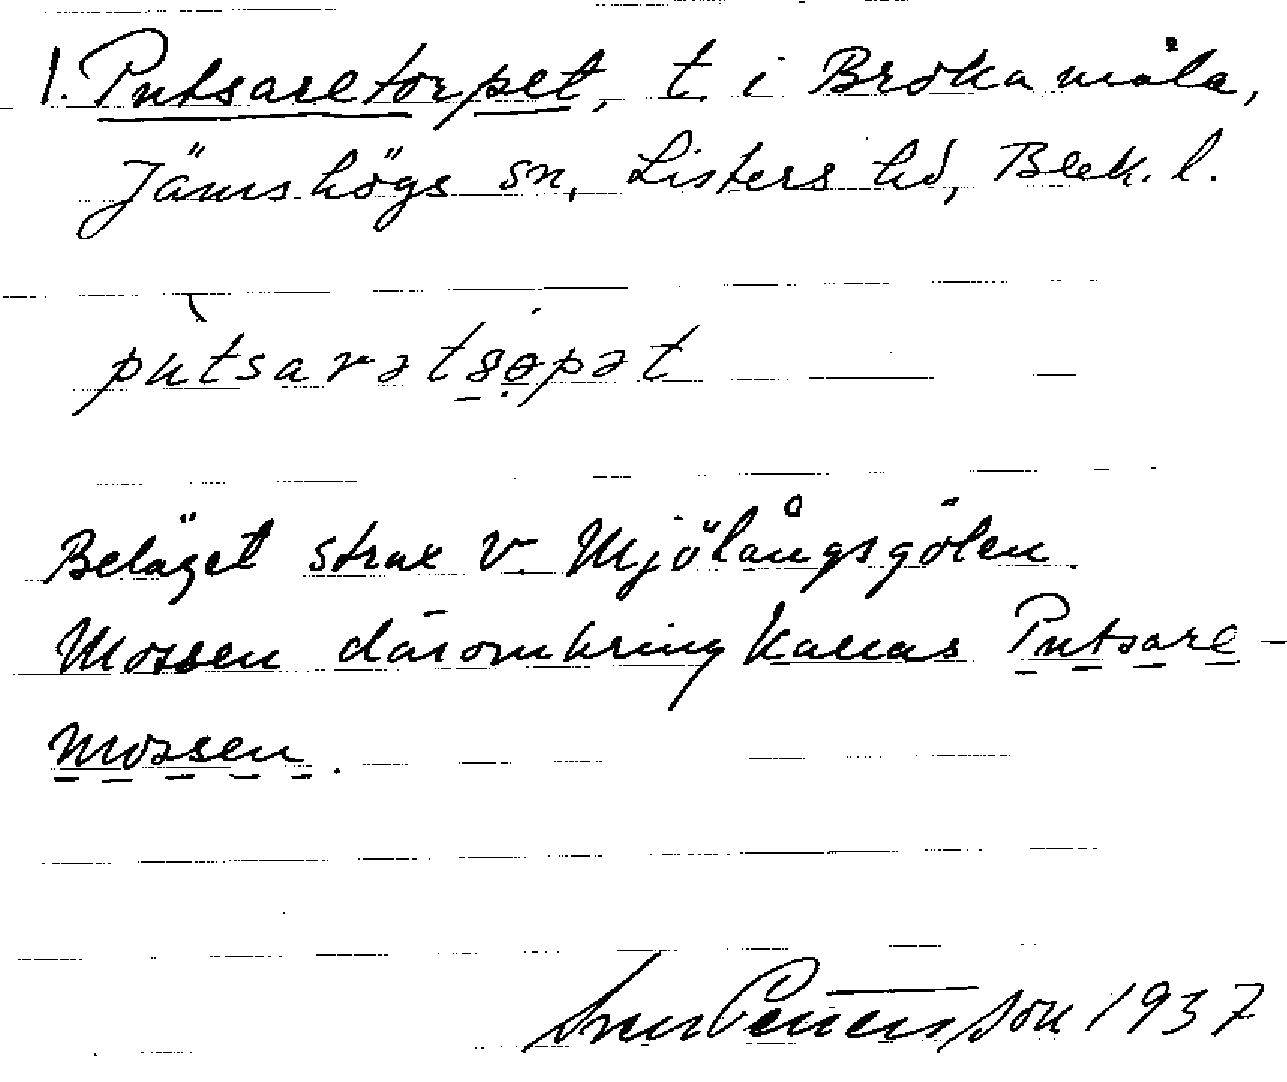 1. Putsaretorpet, t. i Brokamåla,
Jämshögs sn, Listers hd, Blek. l.
pùtsarətsǫpət
Beläget strax v. Mjölångsgölen.
Mossen däromkring kallas Putsare-
mossen.
1937